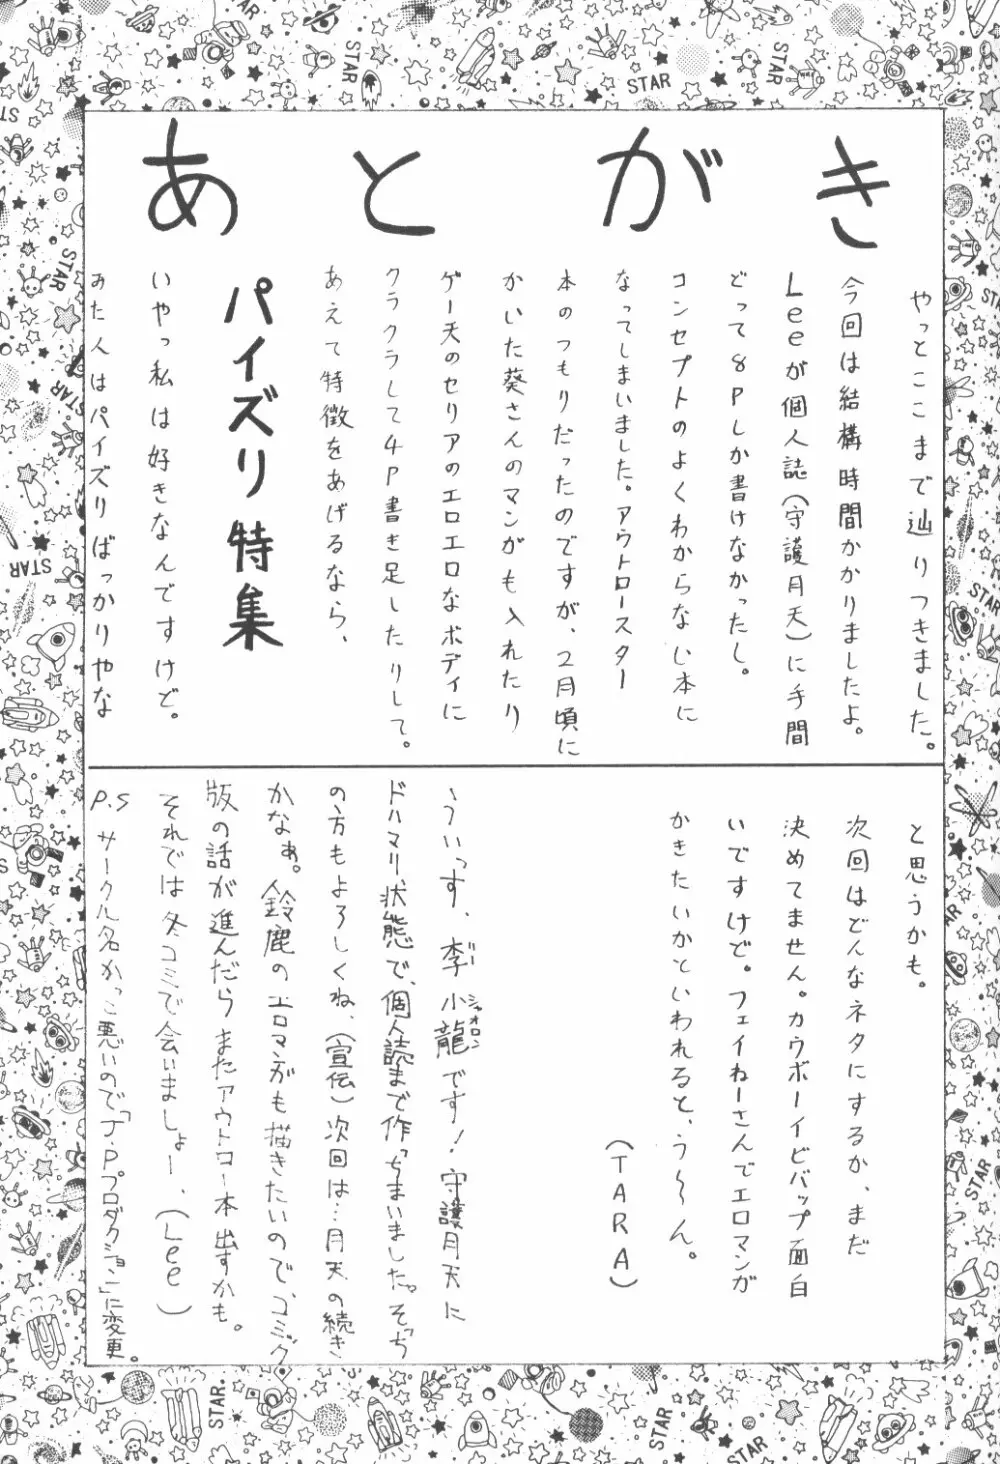 あとがき
やっとここまで辿りつきました。
今回は結構時間かかりましたよ。
Leeが個人誌(守護月天)に手間
どって8Pしか書けなかったし。
コンセプトのよくわからない本に
なってしまいました。アウトロースター
本のつもりだったのですが、2月頃に
かいた葵さんのマンガも入れたり
ゲー天のセリアのエロエロなボディに
クラクラして4P書き足したりして。
あえて特徴をあげるなら、
パイズリ特集
いやっ私は好きなんですけど。
みた人はパイズリばっかりやな
と思うかも。
次回はどんなネタにするか、まだ
決めてません。カウボーイビバップ面白
いですけど。フェイねーさんでエロマンガ
かきたいかといわれると、う～ん。
(TARA)
ういっす、李小龍です!守護月天に
リー シャオロン
ドハマリ状態で、個人読まで作っちまいました。そっち
の方もよろしくね、(宣伝)次回は…月天の続き
かなぁ。鈴鹿のエロマンガも描きたいので、コミック
版の話が進んだらまたアウトロー本出すかも。
それでは冬コミで会いましょー、(Lee)
P.S サークル名かっこ悪いので「J.Pプロダクション」に変更。
STAR
STAR
STAR
STAR
STAR
STAR
STAR
STAR
STAR
STAR
STAR
STAR
STAR
STAR